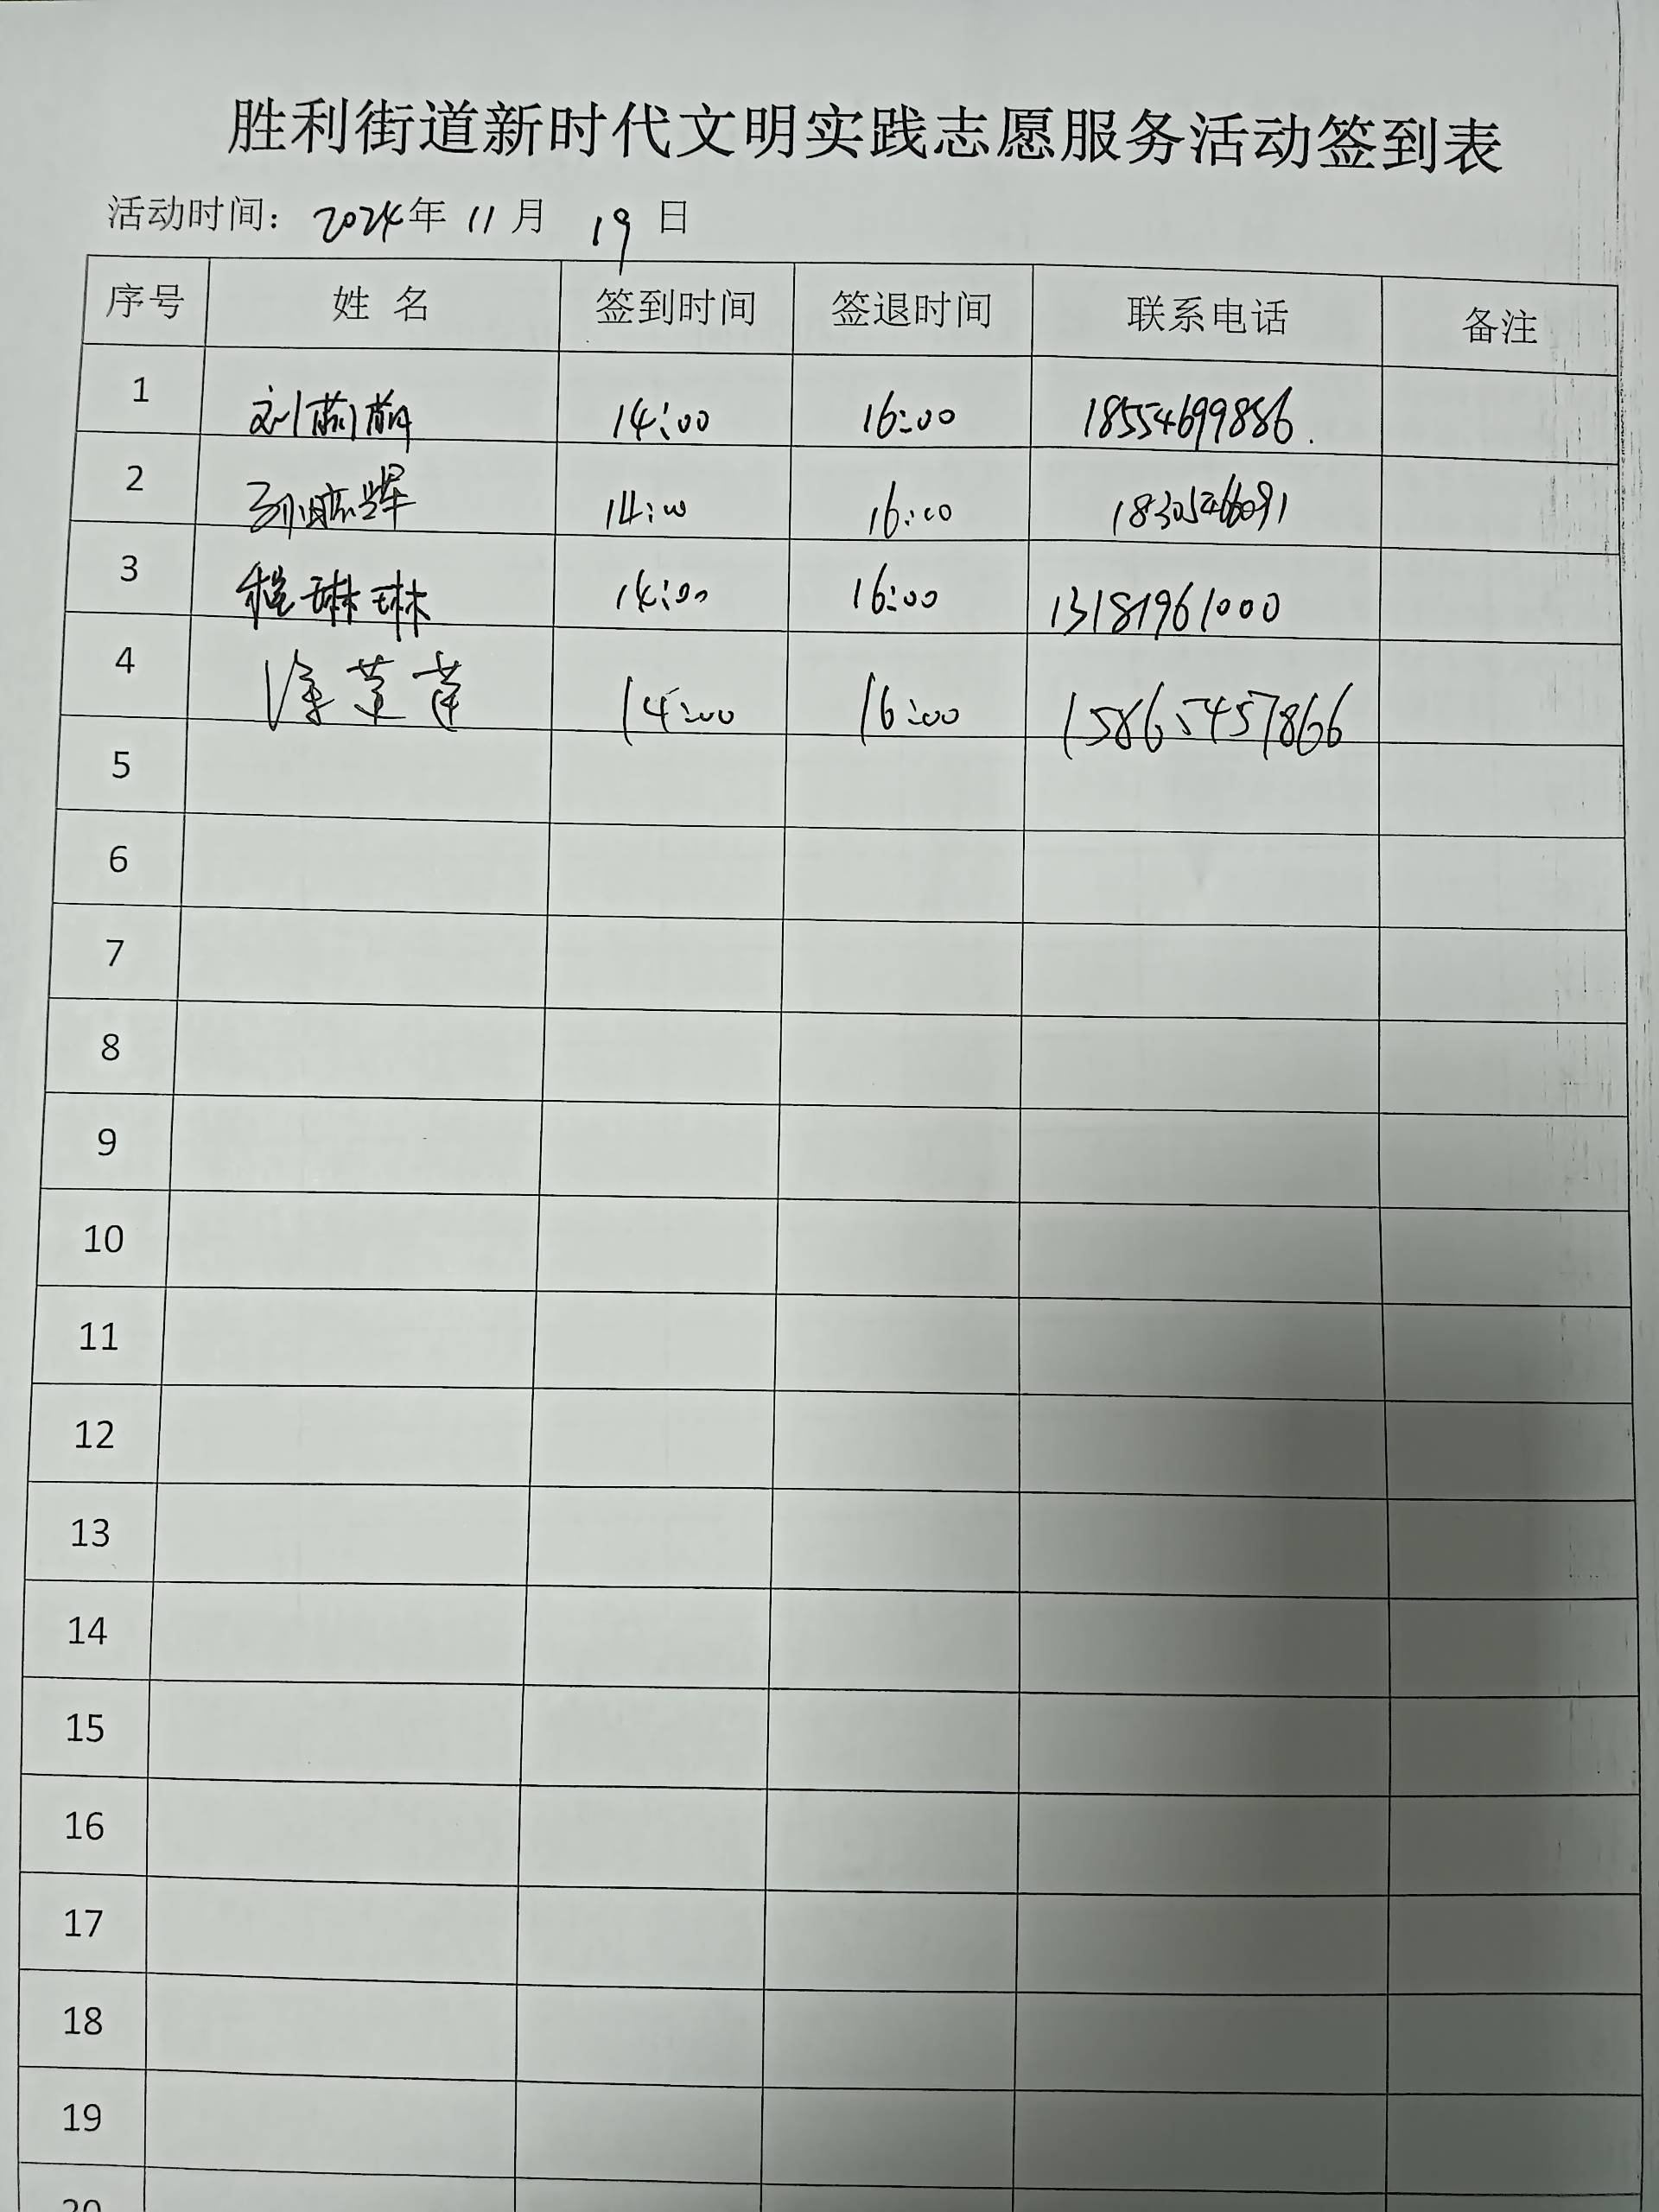 胜利街道新时代文明实践志愿服务活动签到表
活动时间：2024年 11月 19日
序号 姓 名 签到时间 签退时间 联系电话 备注
1 刘 14:00 16:00 18554699886.
2 孙晓辉 14:00 16:00 18305466091
3 程琳琳 14:00 16:00 13181961000
4 14:00 16:00 15865457866
5
6
7
8
9
10
11
12
13
14
15
16
17
18
19
20